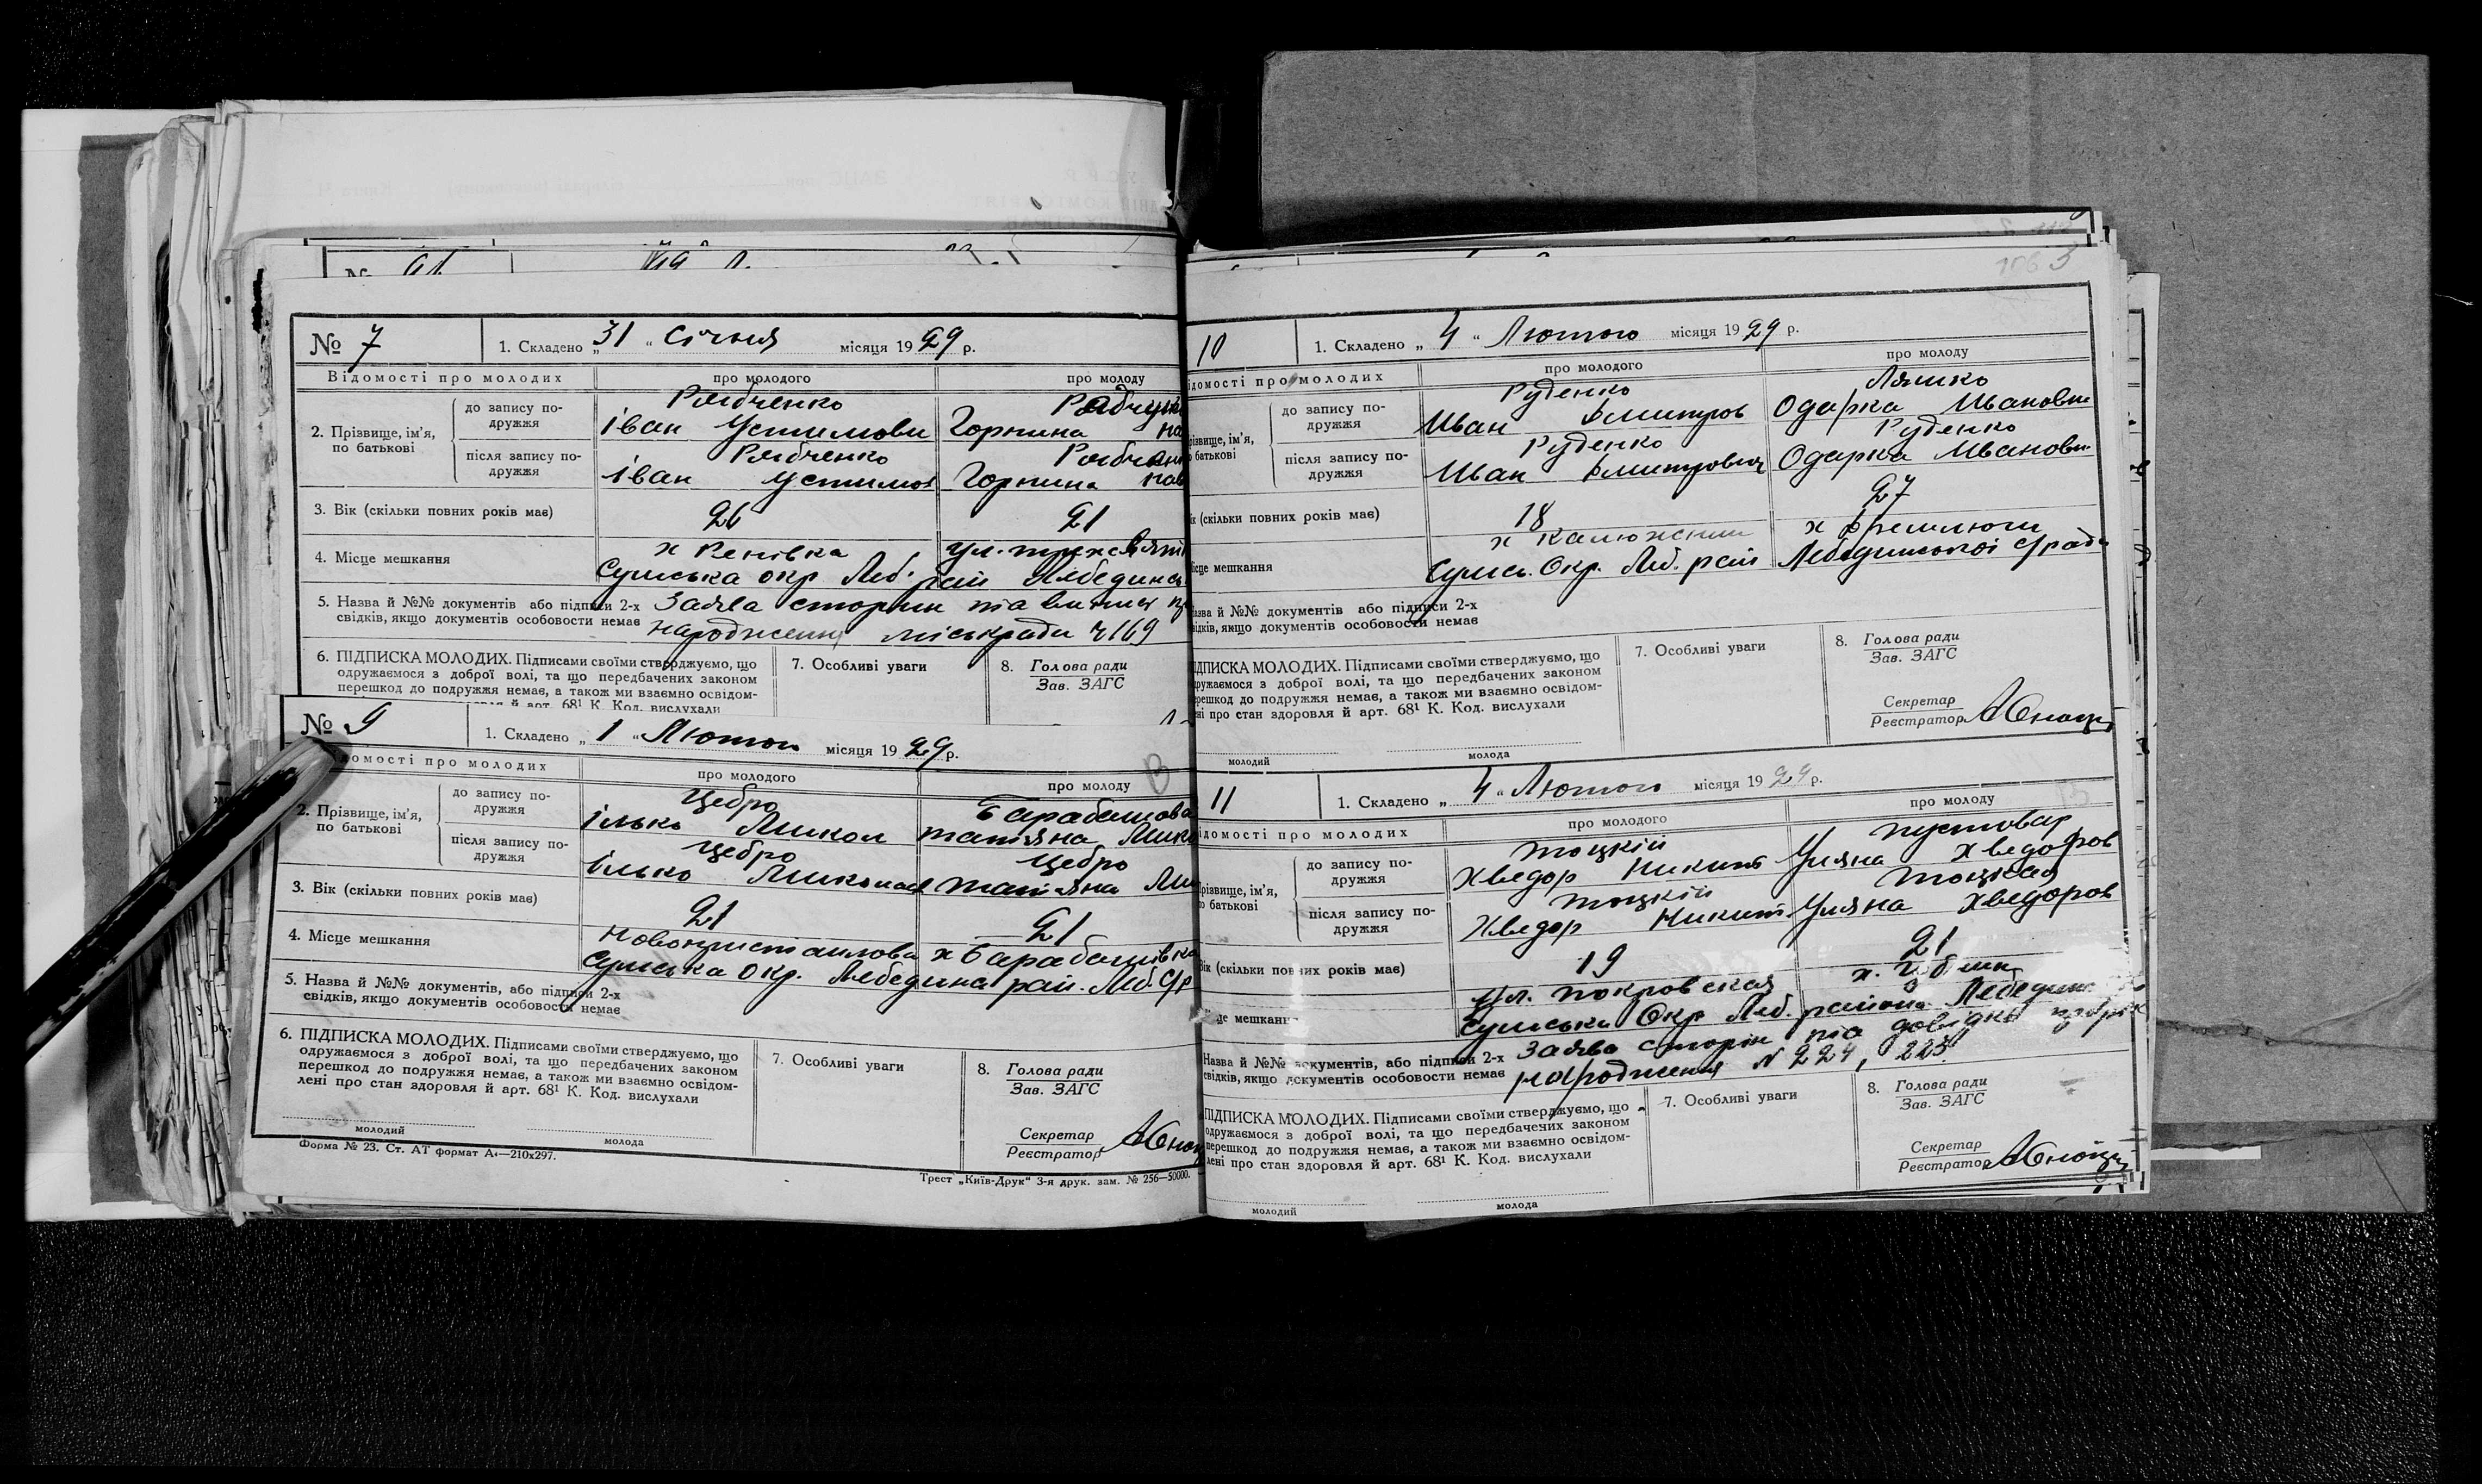 № 7
1. Складено „ 31 “ Січня місяця 19 29 р.
Відомості про молодих
про молодого
про молоду
2. Прізвище, ім'я, по батькові
до запису подружжя
Рябченко
Іван Устимови
Горпина
після запису подружжя
Рябченко
Іван Устимов
Горпина
3. Вік (скільки повних років має)
26
21
4. Місце мешкання
х Ренівка
Сумська окр. Леб. рай Лебединсь
5. Назва й №№ документів або підписи 2-х
свідків, якщо документів особовости немає
Заява сторін та витяг
народження міськради 169
6. ПІДПИСКА МОЛОДИХ. Підписами своїми стверджуємо, що
одружаємося з доброї волі, та що передбачених законом
перешкод до подружжя немає, а також ми взаємно освідом-
й арт. 68¹ К. Код. вислухали
7. Особливі уваги
8. Голова ради
Зав. ЗАГС
№ 9
1. Складено „ 1 “ Лютого місяця 19 29 р.
домості про молодих
про молодого
про молоду
2. Прізвище, ім'я, по батькові
до запису подружжя
Цебро
Барабашова
Ілько Микол
Татіяна Мико
після запису подружжя
Цебро
Цебро
Ілько Миколає
Татіяна Ми
3. Вік (скільки повних років має)
21
21
4. Місце мешкання
х Барабашівка
Сумська окр. Лебедина рай. Леб. С/р
5. Назва й №№ документів, або підписи 2-х
свідків, якщо документів особовости немає
6. ПІДПИСКА МОЛОДИХ. Підписами своїми стверджуємо, що
одружаємося з доброї волі, та що передбачених законом
перешкод до подружжя немає, а також ми взаємно освідом-
лені про стан здоровля й арт. 68¹ К. Код. вислухали
молодий
молода
7. Особливі уваги
8. Голова ради
Зав. ЗАГС
Секретар
Реєстратор
Форма № 23. Ст. АТ формат А₄—210х297.
Трест „Київ-Друк“ 3-я друк. зам. № 256—50000.
10
1. Складено „ 4 “ Лютого місяця 19 29 р.
ідомості про молодих
про молодого
про молоду
різвище, ім'я,
о батькові
до запису подружжя
Руденко
Ляшко
Иван Дмитров
Одарка Ивановн
після запису подружжя
Руденко
Руденко
Иван Дмитрович
Одарка Ивановн
ік (скільки повних років має)
18
27
ісце мешкання
х Калюжний
Сумсь. Окр. Леб. рай Лебединської с/ради
азва й №№ документів або підписи 2-х
відків, якщо документів особовости немає
ІДПИСКА МОЛОДИХ. Підписами своїми стверджуємо, що
дружаємося з доброї волі, та що передбачених законом
ерешкод до подружжя немає, а також ми взаємно освідом-
ені про стан здоровля й арт. 68¹ К. Код. вислухали
молодий
молода
7. Особливі уваги
8. Голова ради
Зав. ЗАГС
Секретар
Реєстратор
11
1. Складено „ 4 “ Лютого місяця 19 29 р.
ідомості про молодих
про молодого
про молоду
різвище, ім'я,
о батькові
до запису подружжя
Тоцкій
Пустовар
Хведор Никит
Уляна Хведоров
після запису подружжя
Тоцкій
Тоцкая
Хведор Никит
Уляна Хведоров
Вік (скільки повних років має)
19
21
це мешкання
Ул. Покровская
Сумська Окр Леб. района Лебедин
Назва й №№ документів, або підписи 2-х
свідків, якщо документів особовости немає
Заява сторін та довідки про рік
народження № 224, 225
ПІДПИСКА МОЛОДИХ. Підписами своїми стверджуємо, що
одружаємося з доброї волі, та що передбачених законом
перешкод до подружжя немає, а також ми взаємно освідом-
лені про стан здоровля й арт. 68¹ К. Код. вислухали
молодий
молода
7. Особливі уваги
8. Голова ради
Зав. ЗАГС
Секретар
Реєстратор